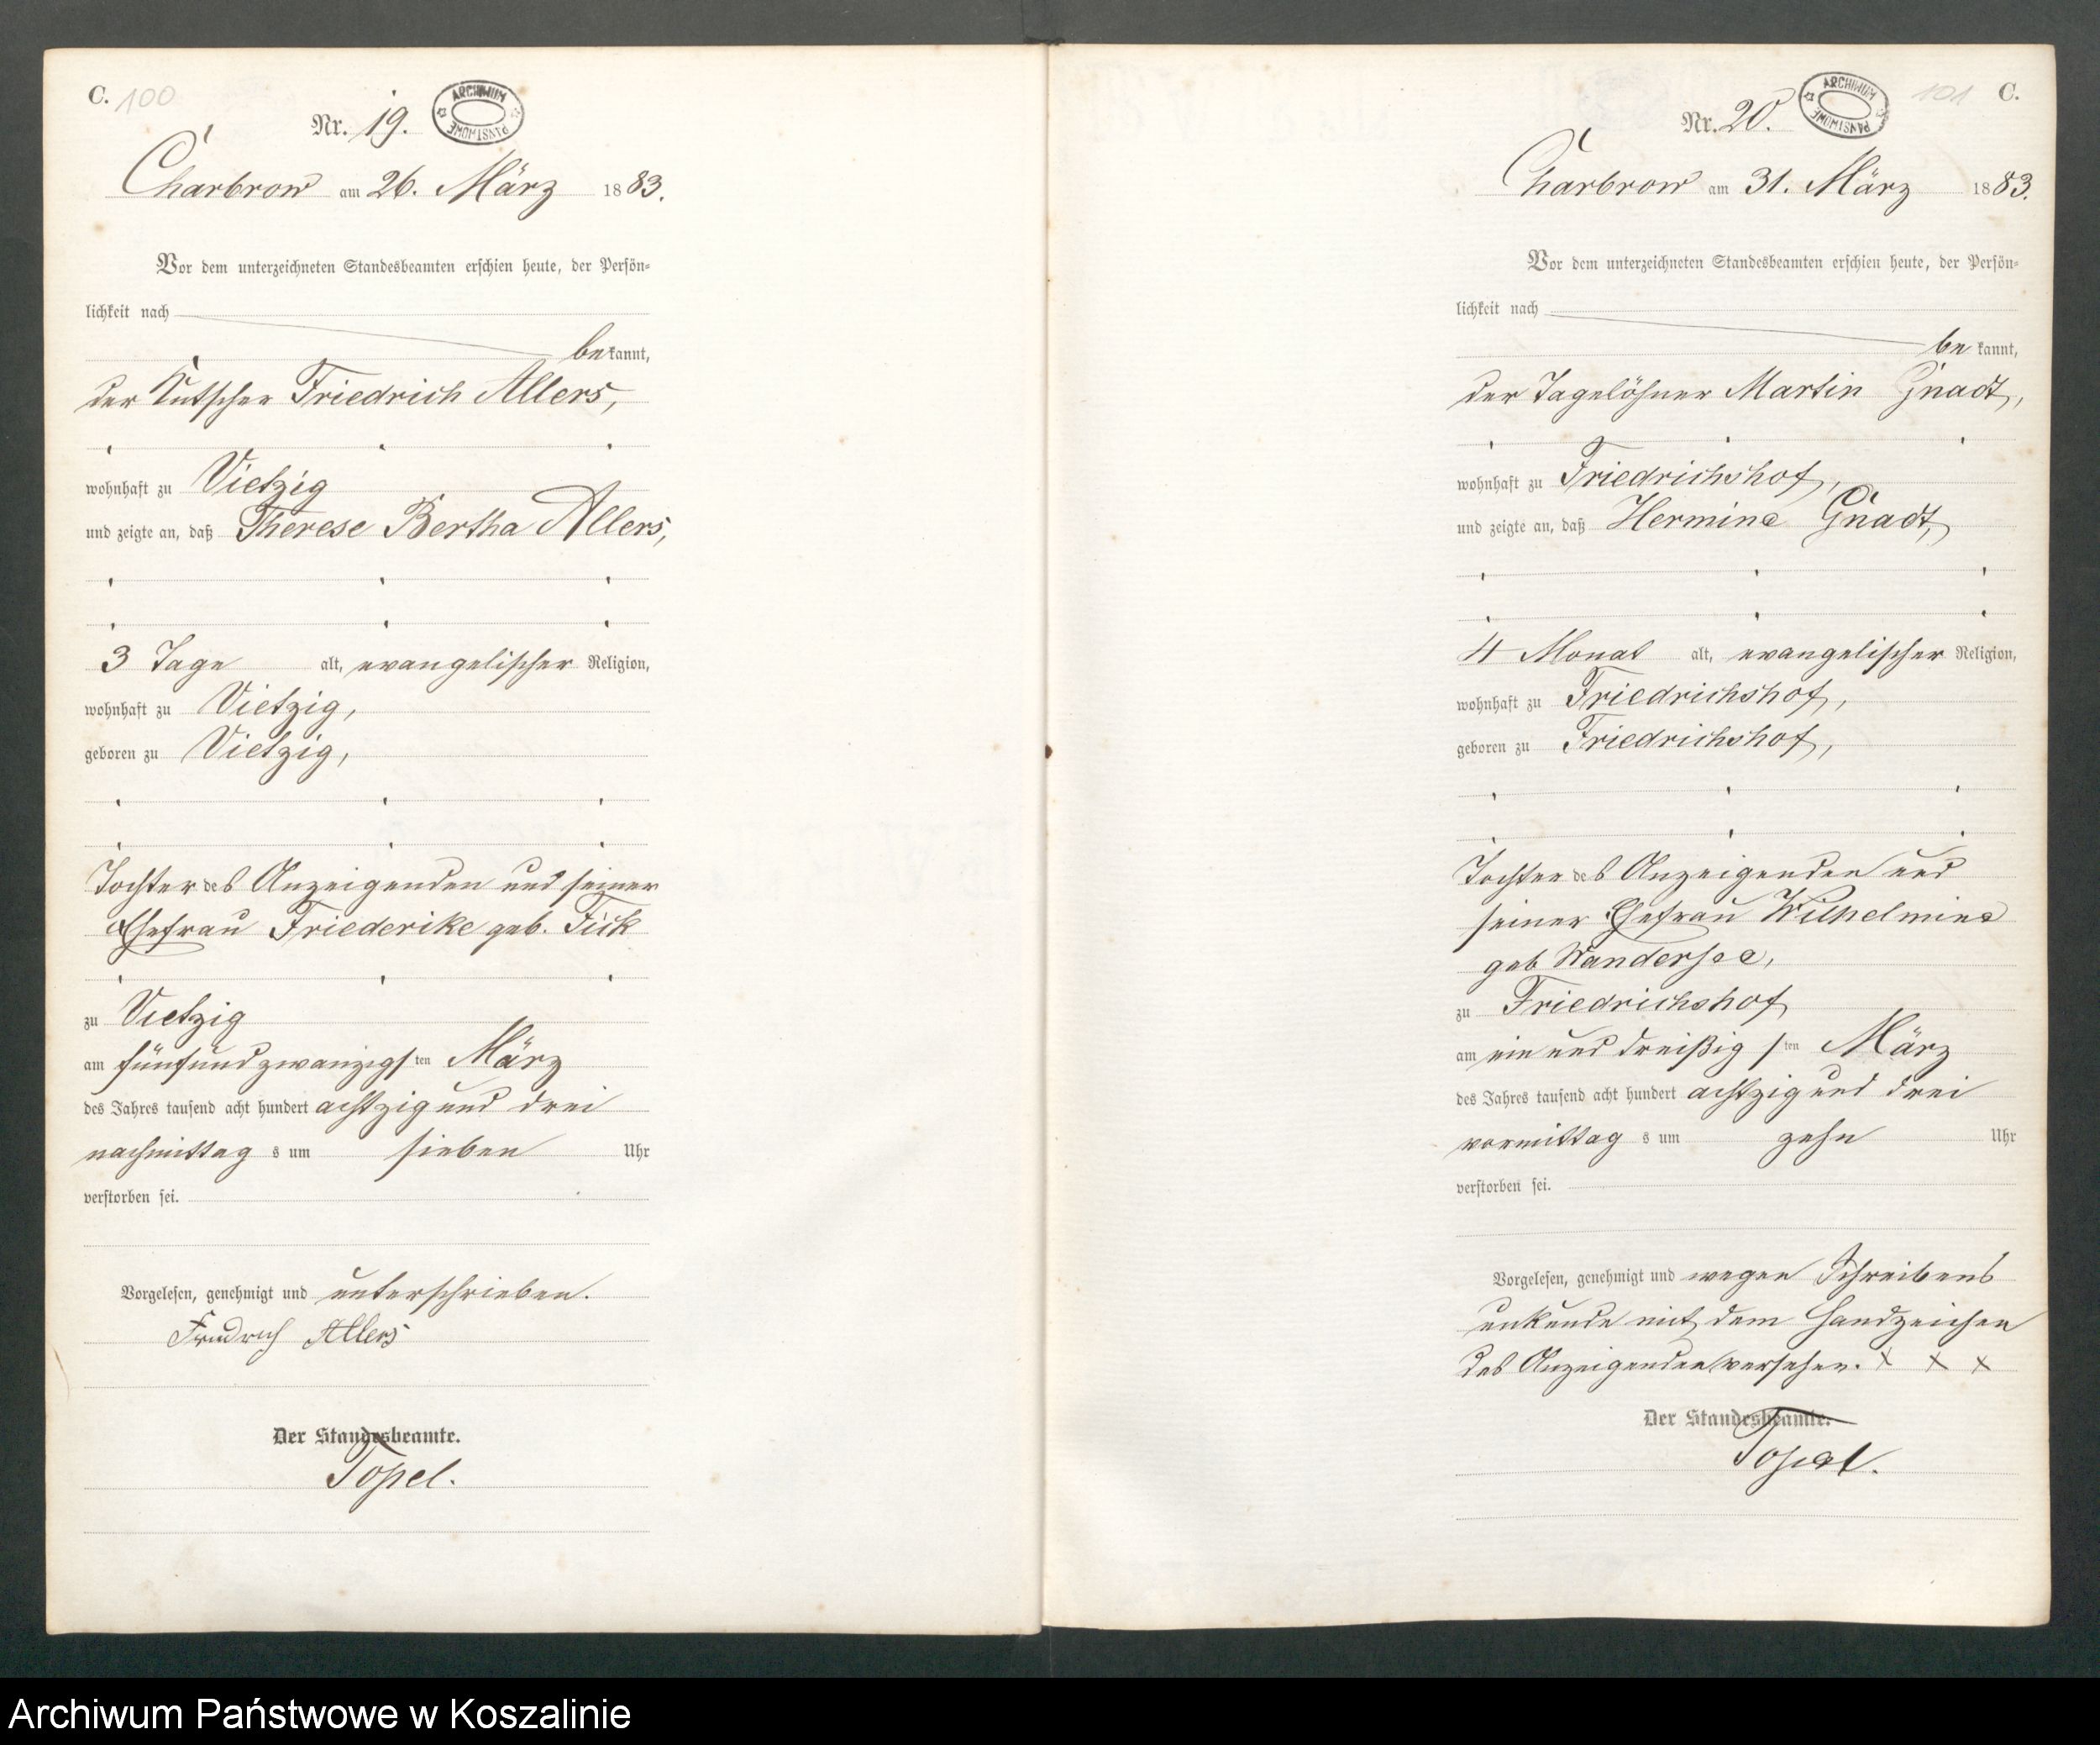 C. 100
Nr. 19.
ARCHIWUM PAŃSTWOWE
Charbrow am 26. März 1883.
Vor dem unterzeichneten Standesbeamten erschien heute, der Persön-
lichkeit nach
bekannt,
der Kutscher Friedrich Allers,
wohnhaft zu Vietzig
und zeigte an, daß Therese Bertha Allers,
3 Tage alt, evangelischer Religion,
wohnhaft zu Vietzig,
geboren zu Vietzig,
Tochter des Anzeigenden und seiner
Ehefrau Friederike geb. Fick
zu Vietzig
am fünfundzwanzigsten März
des Jahres tausend acht hundert achtzig und drei
nachmittags um sieben Uhr
verstorben sei.
Vorgelesen, genehmigt und unterschrieben.
Friedrich Allers
Der Standesbeamte.
Topel.
101 C.
Nr. 20.
ARCHIWUM PAŃSTWOWE
Charbrow am 31. März 1883.
Vor dem unterzeichneten Standesbeamten erschien heute, der Persön-
lichkeit nach
bekannt,
der Tagelöhner Martin Gnadt,
wohnhaft zu Friedrichshof,
und zeigte an, daß Hermine Gnadt,
4 Monat alt, evangelischer Religion,
wohnhaft zu Friedrichshof,
geboren zu Friedrichshof,
Tochter des Anzeigenden und
seiner Ehefrau Wilhelmine
geb Wandersee,
zu Friedrichshof
am ein und dreißigsten März
des Jahres tausend acht hundert achtzig und drei
vormittags um zehn Uhr
verstorben sei.
Vorgelesen, genehmigt und wegen Schreibens
unkunde mit dem Handzeichen
des Anzeigenden versehen. x x x
Der Standesbeamte.
Topel.
Archiwum Państwowe w Koszalinie